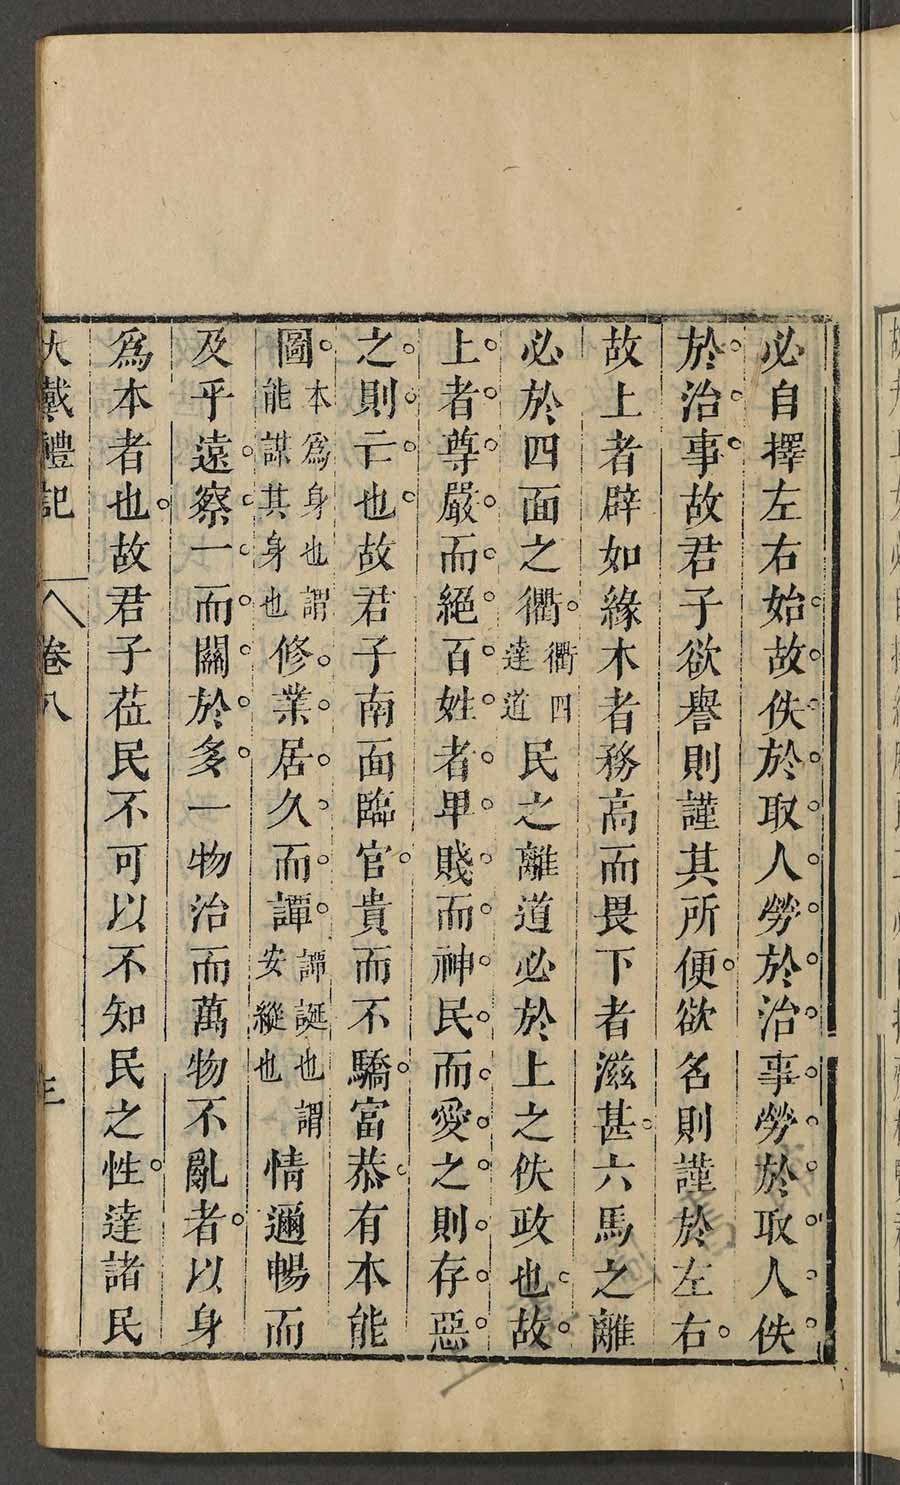 必自擇左右始故佚於取人勞於治事勞於取人佚
於治事故君子欲譽則謹其所便欲名則謹於左右
故上者辟如緣木者務高而畏下者滋甚六馬之離
必於四面之衢衢四達道民之離道必於上之佚政也故
上者尊嚴而絕百姓者卑賤而神民而愛之則存惡
之則亡也故君子南面臨官貴而不驕富恭有本能
圖本爲身也謂能謀其身也修業居久而譚譚誕也謂安縱也情邇暢而
及乎遠察一而關於多一物治而萬物不亂者以身
爲本者也故君子莅民不可以不知民之性達諸民
大戴禮記 卷八 三